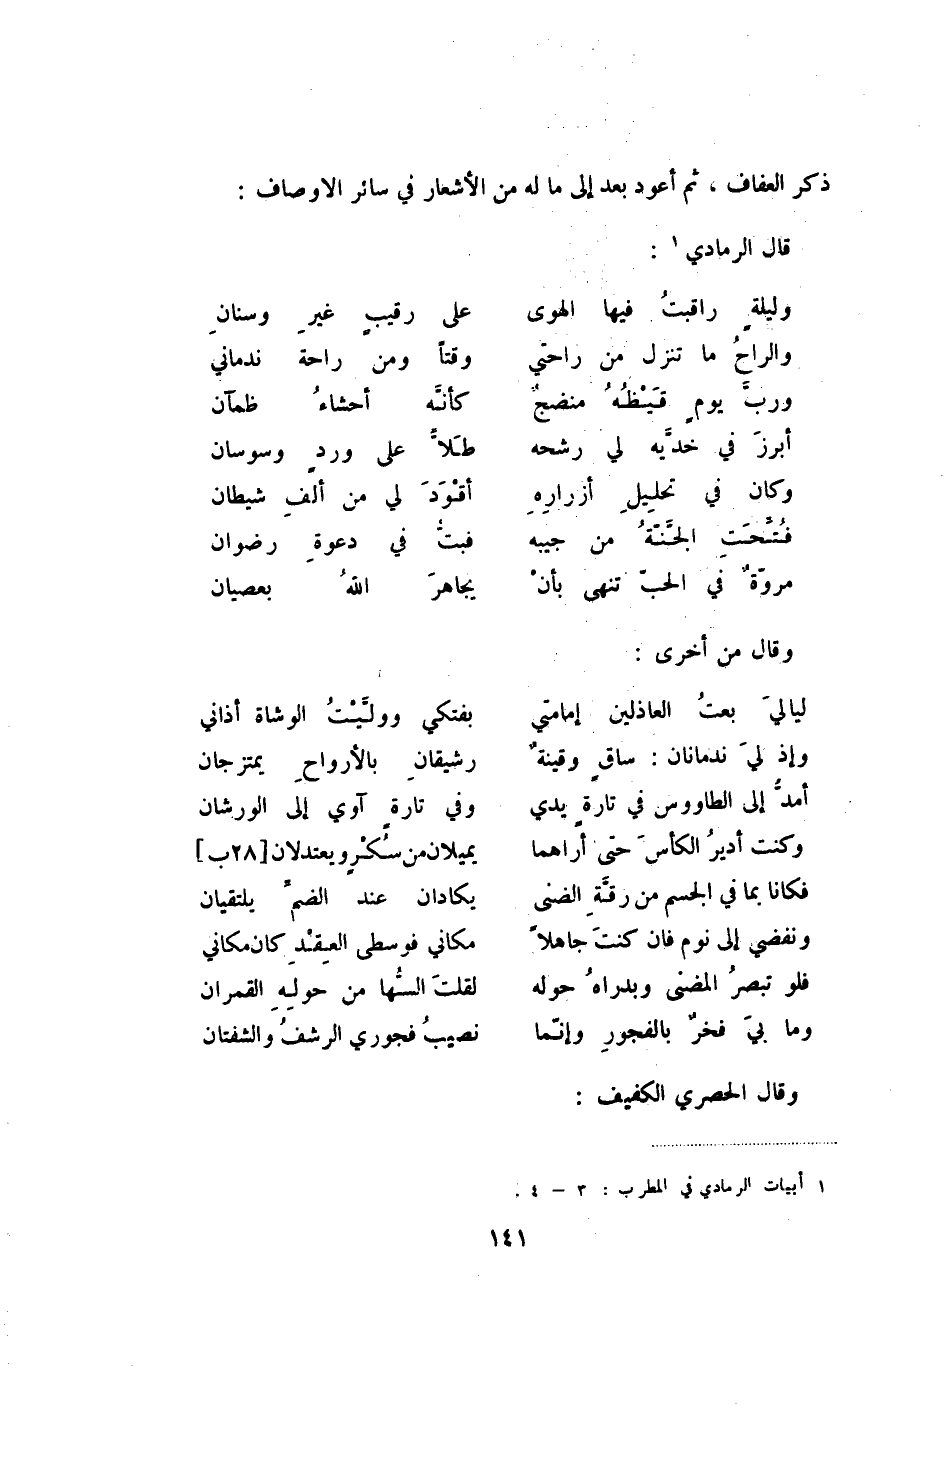 ذكر العفاف ، ثم أعود بعد إلى ما له من الأشعار في سائر الاوصاف :
قال الرمادي ١ :
وليلةٍ راقبتُ فيها الهوى على رقيبٍ غيرِ وسنانِ
والراحُ ما تنزل من راحتي وقتاً ومن راحة ندماني
وربَّ يومٍ قَيْظُهُ منضجٌ كأنَّه أحشاءُ ظمآن
أبرزَ في خدَّيه لي رشحه طَلاًّ على وردٍ وسوسان
وكان في تحليلِ أزرارِهِ أقْوَدَ لي من ألفِ شيطان
فُتِّحَتِ الجَنّةُ من جيبه فبتُّ في دعوةِ رضوان
مروّةٌ في الحبّ تنهى بأنْ يجاهرَ اللهُ بعصيان
وقال من أخرى :
لياليَ بعتُ العاذلين إمامتي بفتكي وولَّيْتُ الوشاة أذاني
وإذ ليَ ندمانان : ساقٍ وقينةٌ رشيقانِ بالأرواحِ يمتزجان
أمدُّ إلى الطاووس في تارةٍ يدي وفي تارةٍ آوي إلى الورشان
وكنت أديرُ الكأسَ حتى أراهما يميلان من سُكْرٍ ويعتدلان [٢٨ب]
فكانا بما في الجسم من رقَّةِ الضنى يكادان عند الضمِّ يلتقيان
ونفضي إلى نوم فان كنتَ جاهلاً مكاني فوسطى العِقْدِ كان مكاني
فلو تبصرُ المضنى وبدراهُ حوله لقلتَ السُّها من حولِهِ القمران
وما بيَ فخرٌ بالفجورِ وإنّما نصيبُ فجوري الرشفُ والشفتان
وقال الحصري الكفيف :
١ أبيات الرمادي في المطرب : ٣ – ٤ .
١٤١